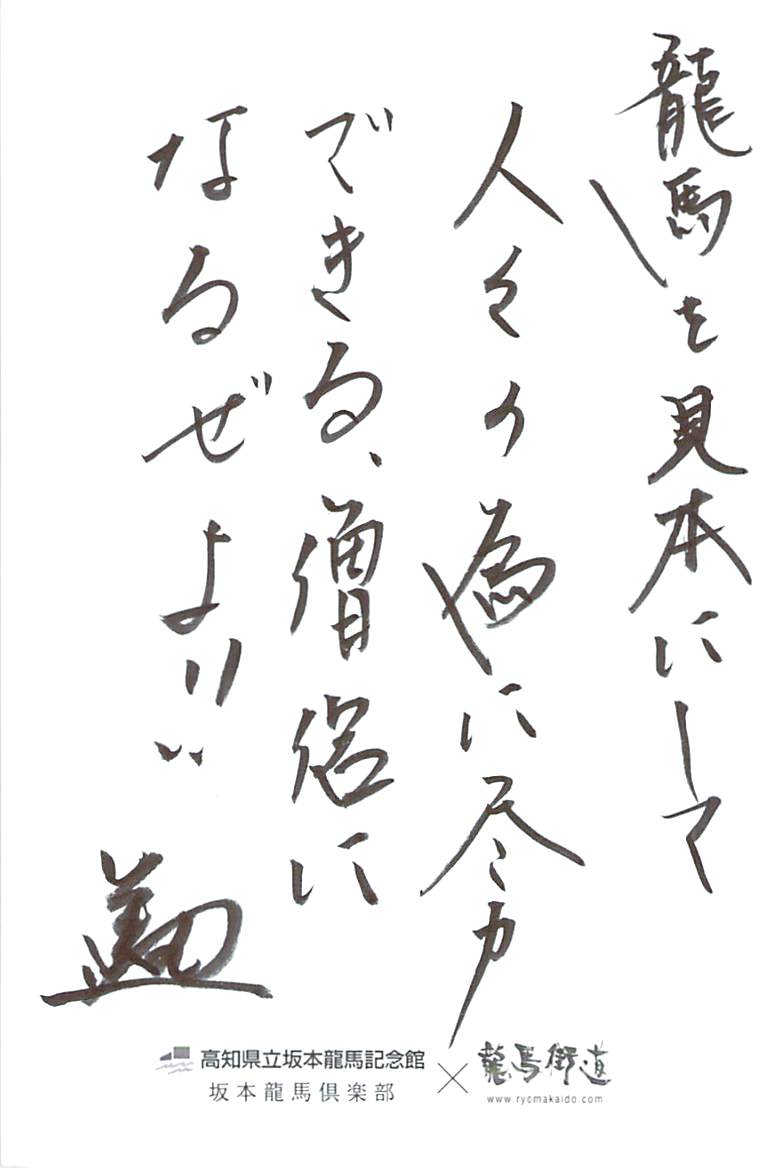 龍馬を見本にして
人々の為に尽力
できる、僧侶に
なるぜよ!!
高知県立坂本龍馬記念館
坂本龍馬倶楽部
×
龍馬街道
www.ryomakaido.com